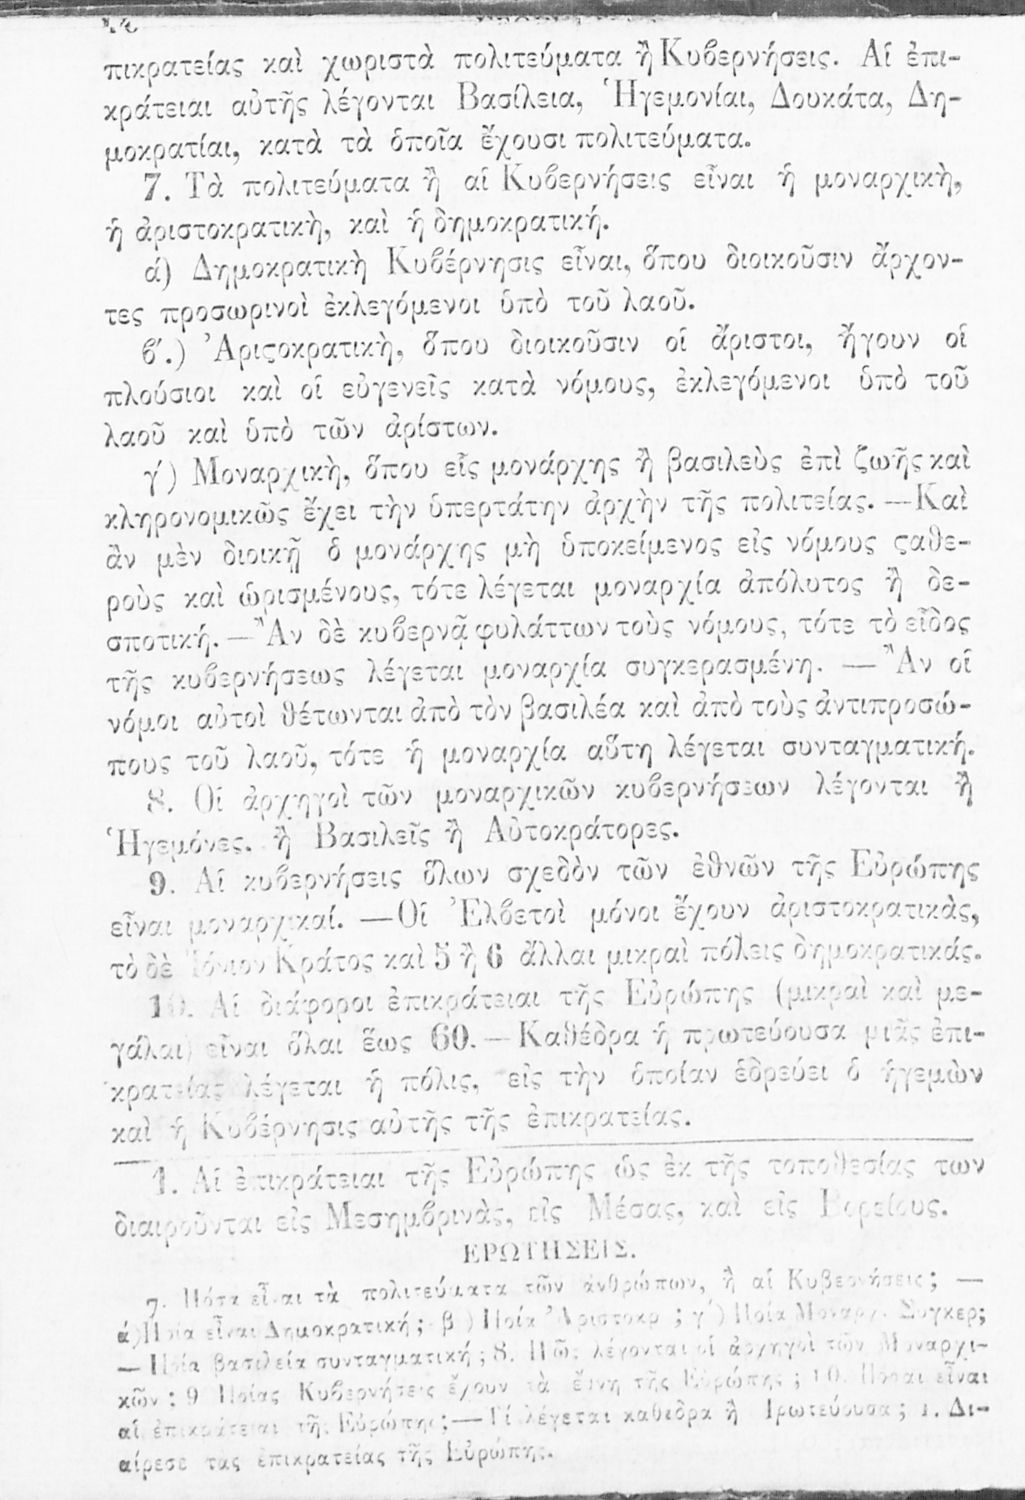 πικρατείας καὶ χωριστὰ πολιτεύματα ἢ Κυβερνήσεις. Αἱ ἐπι-
κράτειαι αὐτῆς λέγονται Βασίλεια, Ἡγεμονίαι, Δουκάτα, Δη-
μοκρατίαι, κατὰ τὰ ὁποῖα ἔχουσι πολιτεύματα.
7. Τὰ πολιτεύματα ἢ αἱ Κυβερνήσεις εἶναι ἡ μοναρχικὴ,
ἡ ἀριστοκρατικὴ, καὶ ἡ δημοκρατική.
ά) Δημοκρατικὴ Κυβέρνησις εἶναι, ὅπου διοικοῦσιν ἄρχον-
τες προσωρινοὶ ἐκλεγόμενοι ὑπὸ τοῦ λαοῦ.
β΄.) Ἀριϛοκρατικὴ, ὅπου διοικοῦσιν οἱ ἄριστοι, ἤγουν οἱ
πλούσιοι καὶ οἱ εὐγενεῖς κατὰ νόμους, ἐκλεγόμενοι ὑπὸ τοῦ
λαοῦ καὶ ὑπὸ τῶν ἀρίστων.
γ΄) Μοναρχικὴ, ὅπου εἷς μονάρχης ἢ βασιλεὺς ἐπὶ ζωῆς καὶ
κληρονομικῶς ἔχει τὴν ὑπερτάτην ἀρχὴν τῆς πολιτείας. —Καὶ
ἂν μὲν διοικῇ ὁ μονάρχης μὴ ὑποκείμενος εἰς νόμους ϛαθε-
ροὺς καὶ ὡρισμένους, τότε λέγεται μοναρχία ἀπόλυτος ἢ δε-
σποτική. —Ἂν δὲ κυβερνᾷ φυλάττων τοὺς νόμους, τότε τὸ εἶδος
τῆς κυβερνήσεως λέγεται μοναρχία συγκερασμένη. — Ἂν οἱ
νόμοι αὐτοὶ θέτωνται ἀπὸ τὸν βασιλέα καὶ ἀπὸ τοὺς ἀντιπροσώ-
πους τοῦ λαοῦ, τότε ἡ μοναρχία αὕτη λέγεται συνταγματική.
8. Οἱ ἀρχηγοὶ τῶν μοναρχικῶν κυβερνήσεων λέγονται ἢ
Ἡγεμόνες. ἢ Βασιλεῖς ἢ Αὐτοκράτορες.
9. Αἱ κυβερνήσεις ὅλων σχεδὸν τῶν ἐθνῶν τῆς Εὐρώπης
εἶναι μοναρχικαί. —Οἱ Ἐλβετοὶ μόνοι ἔχουν ἀριστοκρατικὰς,
τὸ δὲ Ἰόνιον Κράτος καὶ 5 ἢ 6 ἄλλαι μικραὶ πόλεις δημοκρατικάς.
10. Αἱ διάφοροι ἐπικράτειαι τῆς Εὐρώπης (μικραὶ καὶ με-
γάλαι) εἶναι ὅλαι ἕως 60. — Καθέδρα ἢ πρωτεύουσα μιᾶς ἐπι-
κρατείας λέγεται ἡ πόλις, εἰς τὴν ὁποίαν ἑδρεύει ὁ ἡγεμὼν
καὶ ἡ Κυβέρνησις αὐτῆς τῆς ἐπικρατείας.
1. Αἱ ἐπικράτειαι τῆς Εὐρώπης ὡς ἐκ τῆς τοποθεσίας των
διαιροῦνται εἰς Μεσημβρινὰς, εἰς Μέσας, καὶ εἰς Βορείους.
ΕΡΩΤΗΣΕΙΣ.
7. Πόσα εἶναι τὰ πολιτεύματα τῶν ἀνθρώπων, ἢ αἱ Κυβερνήσεις; —
ά) Ποία εἶναι Δημοκρατική; β΄) Ποία Ἀριστοκρ ; γ΄) Ποία Μοναρχ. Συγκερ;
— Ποία βασιλεία συνταγματική; 8. Πῶς λέγονται οἱ ἀρχηγοὶ τῶν Μοναρχι-
κῶν; 9 Ποίας Κυβερνήσεις ἔχουν τὰ ἔθνη τῆς Εὐρώπης; 10. Πόσαι εἶναι
αἱ ἐπικράτειαι τῆς Εὐρώπης; — Τί λέγεται καθέδρα ἢ Πρωτεύουσα; 1. Δι-
αίρεσε τας ἐπικρατείας τῆς Εὐρώπης.